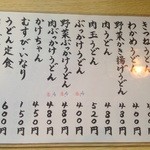 きつねうどん
わかめうどん
野菜かき揚げうどん 480円
肉うどん 480円
肉玉うどん 520円
ぶっかけうどん 400円
野菜ぶっかけうどん 480円
肉ぶっかけうどん 480円
かけちゃん 450円
むすび・いなり 150円
うどん定食 600円